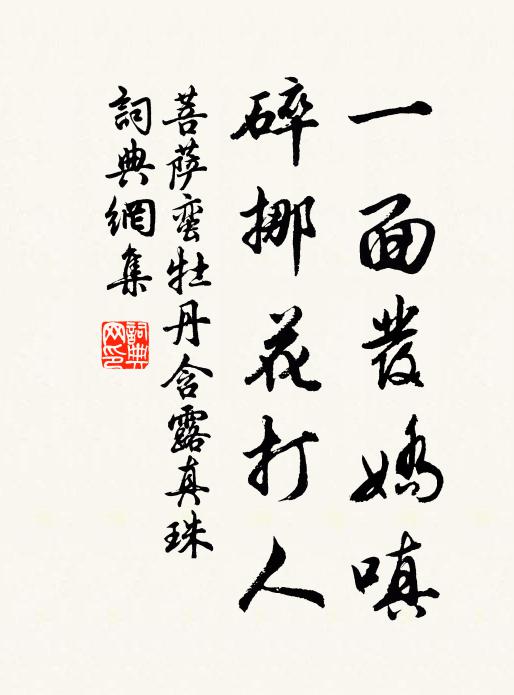 一面發嬌嗔
碎挪花打人
菩薩蠻牡丹含露真珠
詞典網集
詞典网印